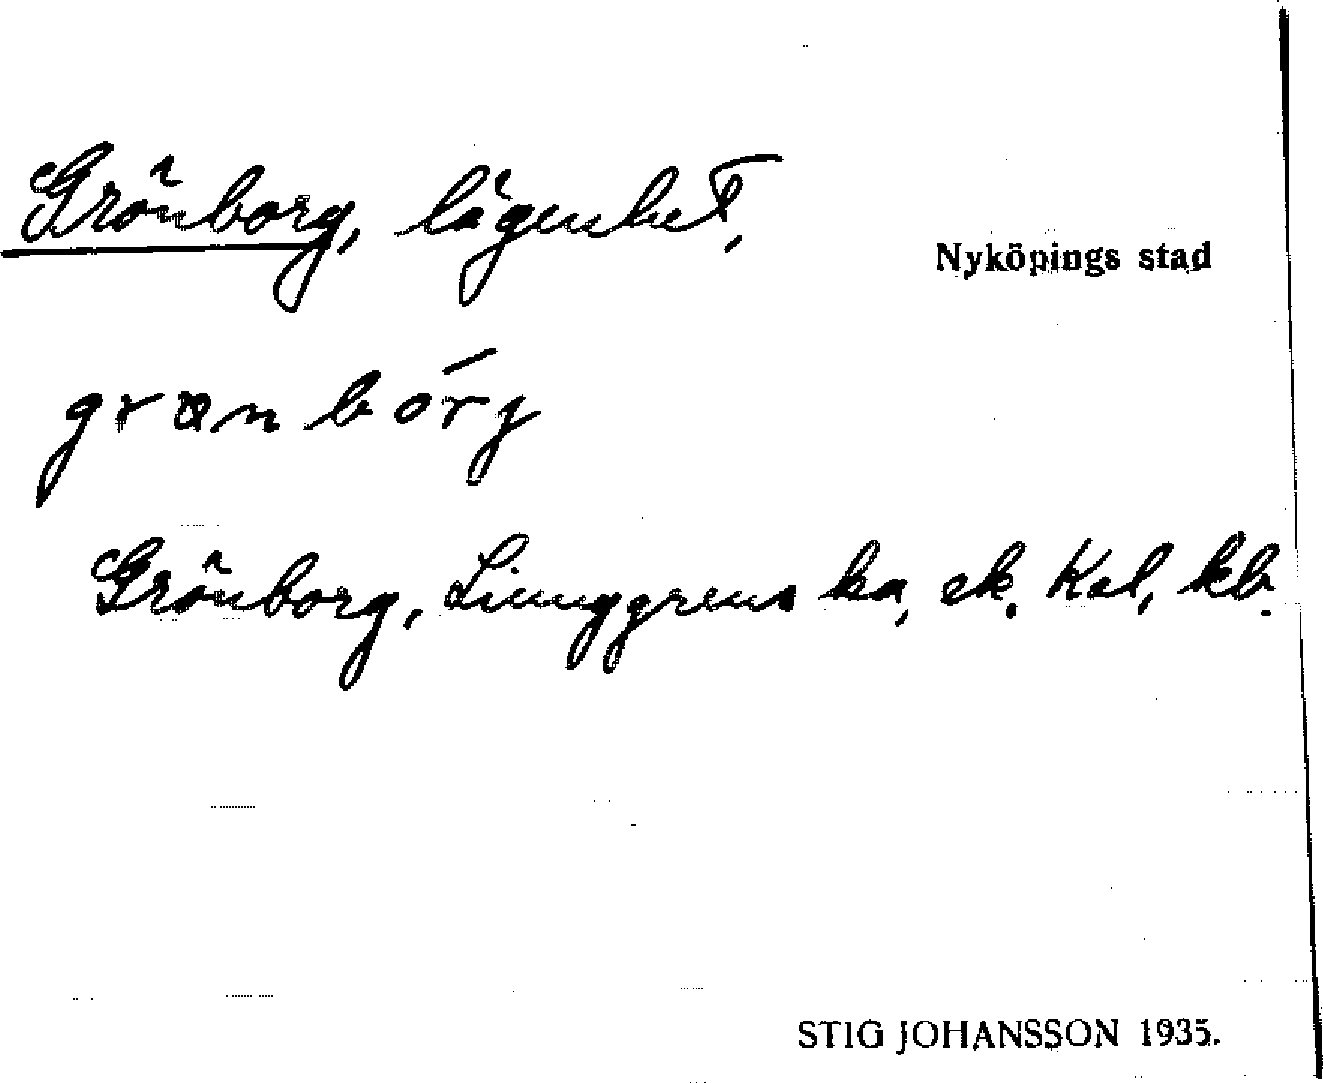 Grönborg, lägenhet,
Nyköpings stad
grønbórj
Grönborg, Ljunggrens ka, ek. Kal, kb.
STIG JOHANSSON 1935.